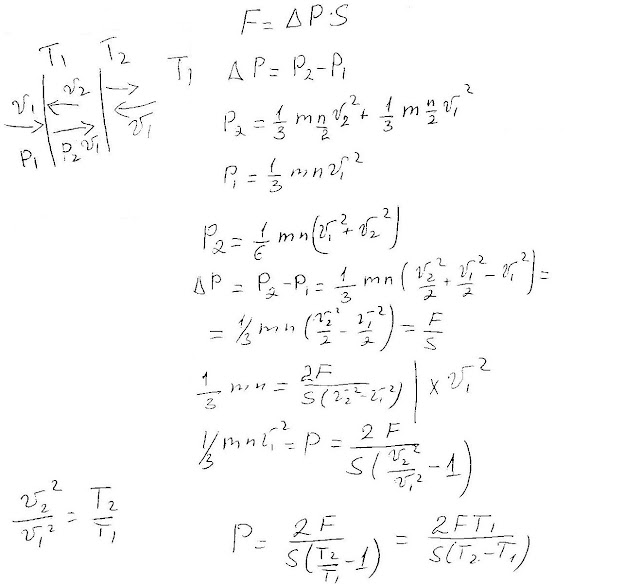 F = ΔP·S
T₁ T₂ T₁ ΔP = P₂ - P₁
v₁ v₂ v₁
P₁ P₂ v₁
P₂ = 1/3 m n/2 v₂² + 1/3 m n/2 v₁²
P₁ = 1/3 mnv₁²
P₂ = 1/6 mn(v₁² + v₂²)
ΔP = P₂ - P₁ = 1/3 mn(v₂²/2 + v₁²/2 - v₁²) =
= 1/3 mn(v₂²/2 - v₁²/2) = F/S
1/3 mn = 2F/S(v₂² - v₁²) | × v₁²
1/3 mnv₁² = P = 2F/S(v₂²/v₁² - 1)
v₂²/v₁² = T₂/T₁
P = 2F/S(T₂/T₁ - 1) = 2FT₁/S(T₂ - T₁)